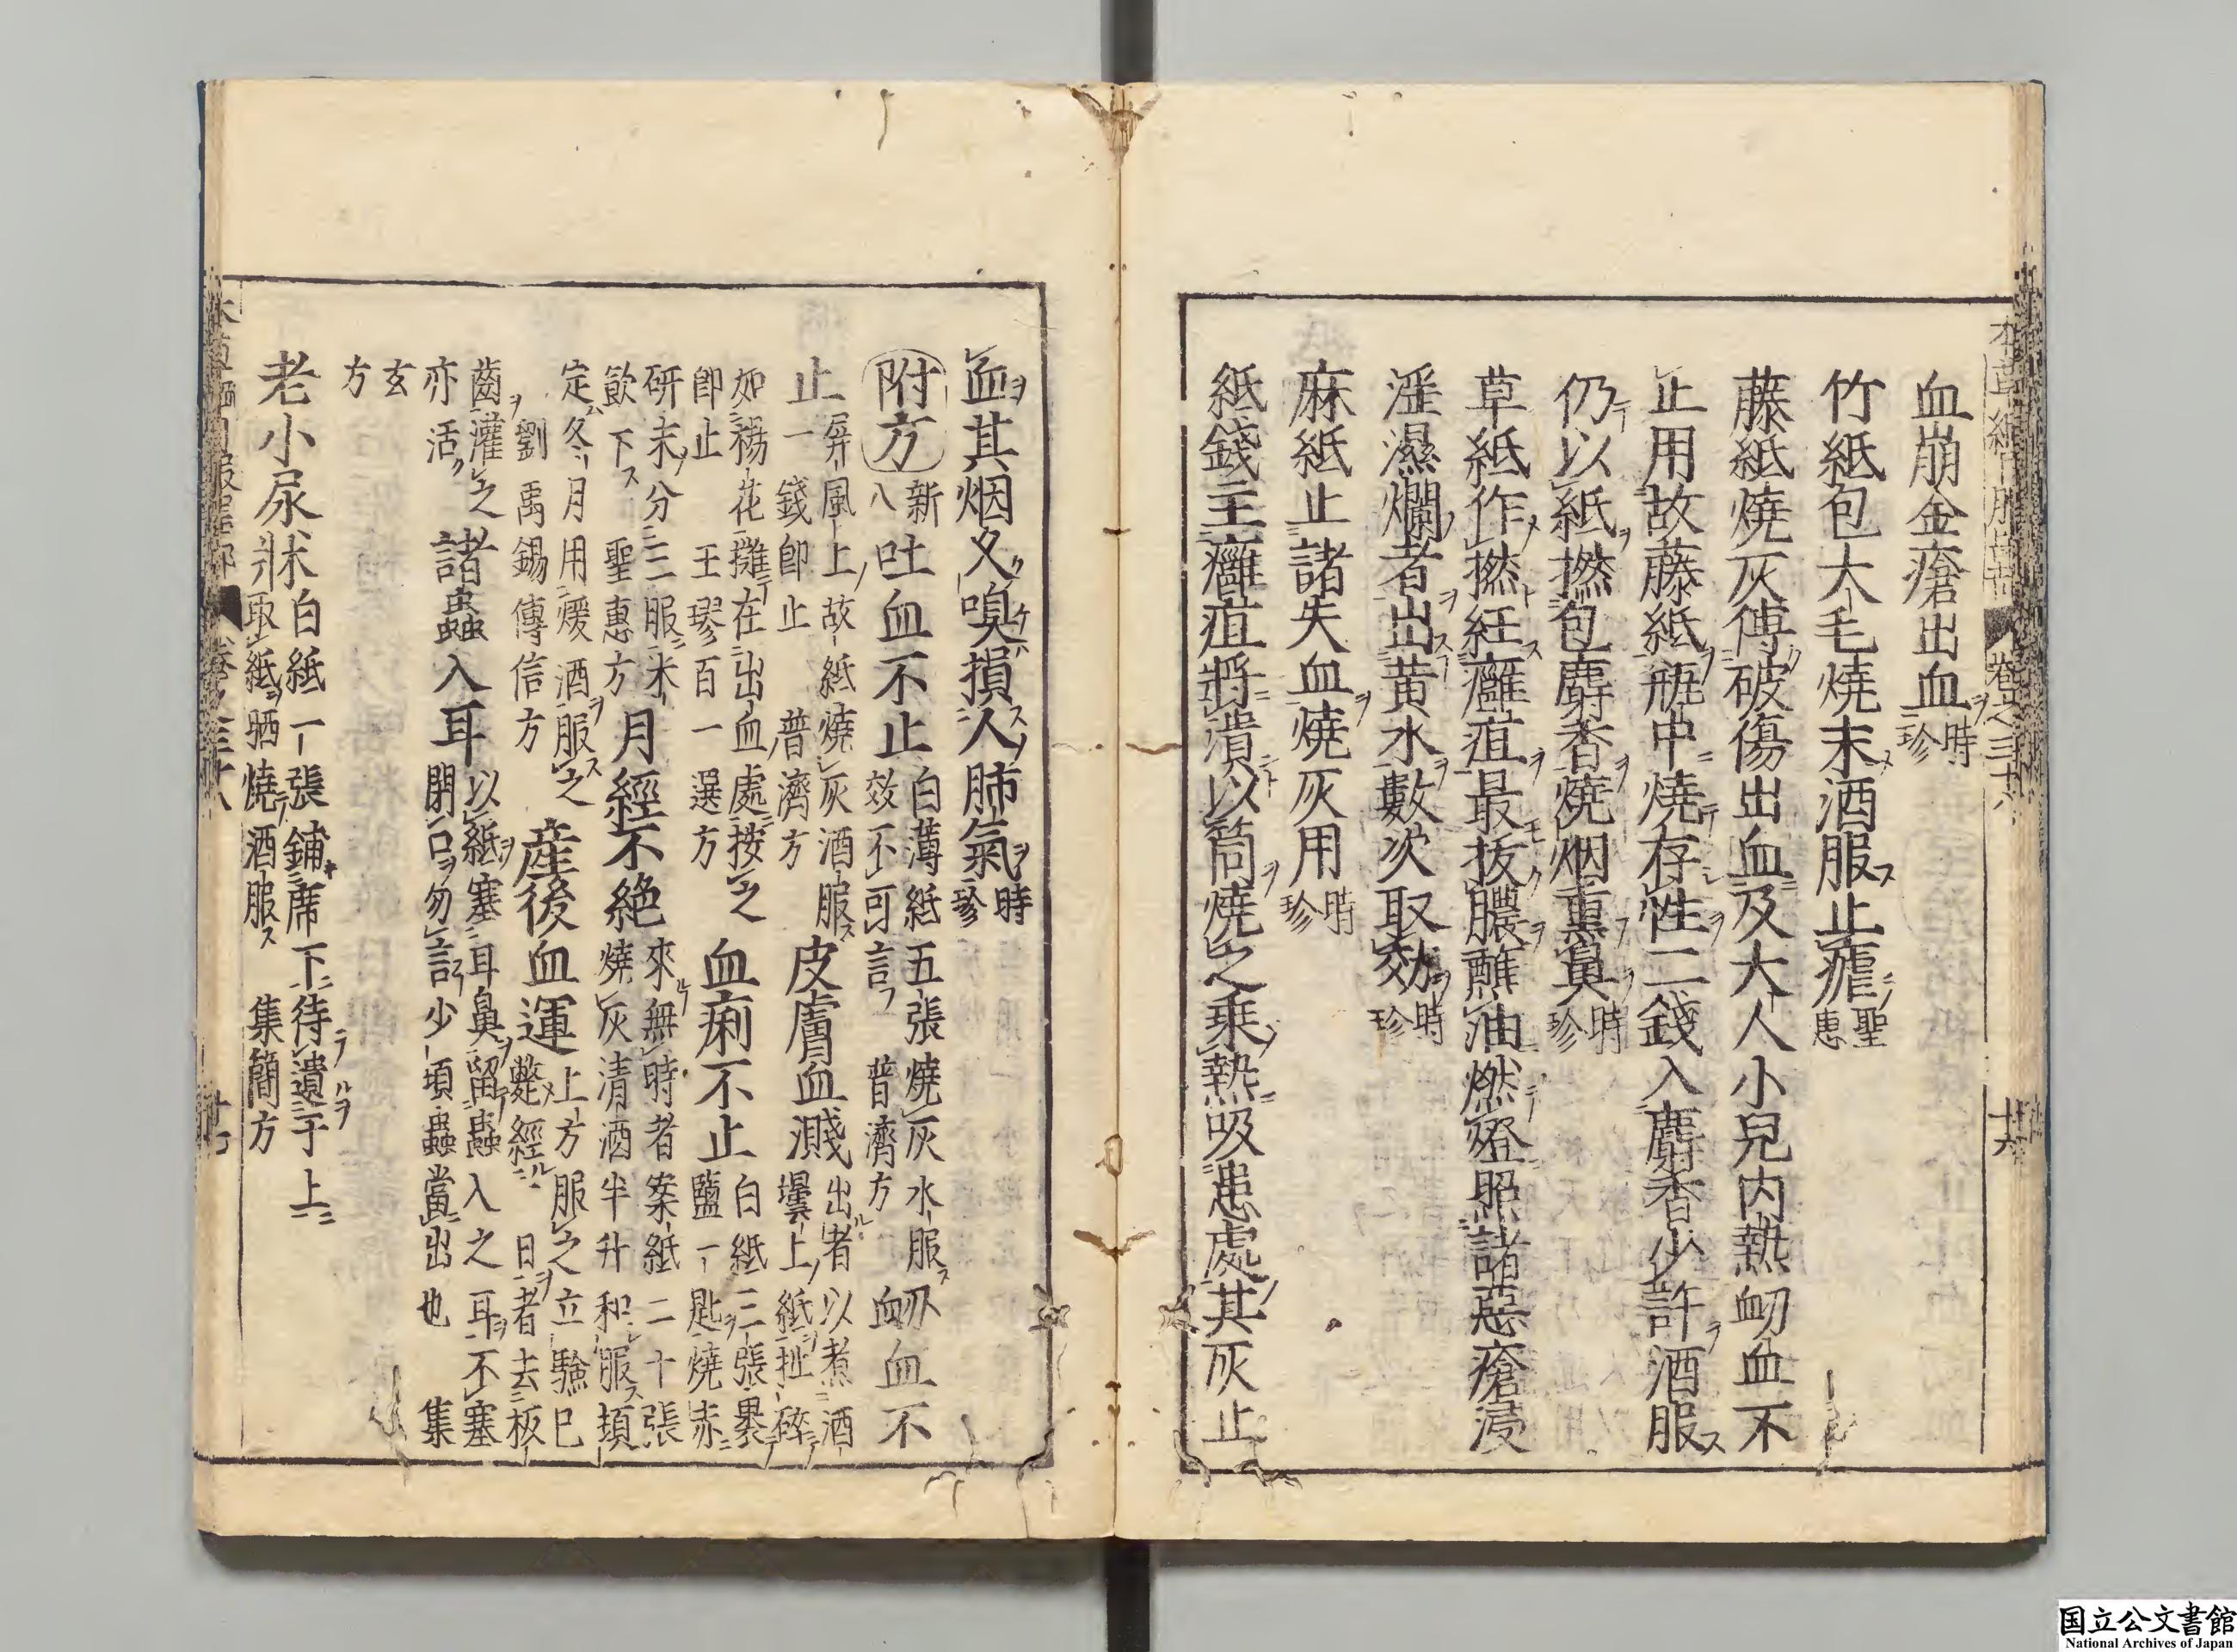 血崩金瘡出血時珍
竹紙包犬毛燒末酒服止瘧聖惠
藤紙燒灰傅破傷出血及大人小兒内熱衄血不
止用故藤紙瓶中燒存性二錢入麝香少許酒服
仍以紙撚包麝香燒烟熏鼻時珍
草紙作撚紝癰疽最拔膿蘸油燃燈照諸惡瘡浸
淫濕爛者出黃水數次取效時珍
麻紙止諸失血燒灰用時珍
紙錢主癰疽將潰以筒燒之乘熱吸患處其灰止
血其烟久嗅損人肺氣時珍
附方新八吐血不止白薄紙五張燒灰水服效不可言 普濟方衄血不
止屏風上故紙燒灰酒服一錢即止 普濟方皮膚血濺出者以煮酒壜上紙扯碎
如楊花攤在出血處按之即止 王璆百一選方血痢不止白紙三張畧鹽一匙燒赤
研末分三服米飲下 聖惠方月經不絶來無時者案紙二十張燒灰清酒半升和服頓
定冬月用煖酒服之 劉禹錫傳信方産後血運上方服之立驗已斃經日者去板
齒灌之亦活諸蟲入耳以紙塞耳鼻留蟲入之耳不塞閉口勿言少頃蟲當出也 集
玄方
老小尿牀白紙一張鋪席下待遺于上取紙晒燒酒服 集簡方
卷之三十八
廿六
廿七
国立公文書館
National Archives of Japan